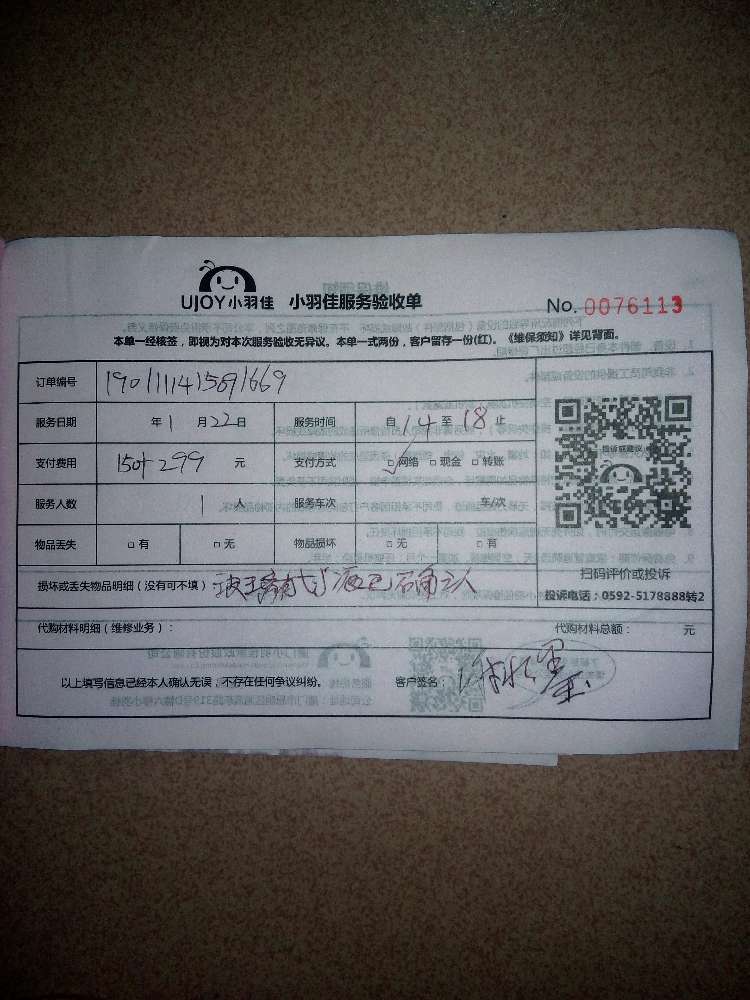 UJOY小羽佳 小羽佳服务验收单 No. 0076113
本单一经核签，即视为对本次服务验收无异议。本单一式两份，客户留存一份(红)。《维保须知》详见背面。
订单编号
服务日期 年 1 月 22 日 服务时间 自 14 至 18 止
支付费用 150+299 元 支付方式 ☑网络 □现金 □转账
服务人数 1 人 服务车次 车/次
物品丢失 □有 □无 物品损坏 □无 □有
投诉或建议
扫码评价或投诉
投诉电话：0592-5178888转2
损坏或丢失物品明细（没有可不填）
代购材料明细（维修业务）： 代购材料总额： 元
以上填写信息已经本人确认无误，不存在任何争议纠纷。 客户签名：